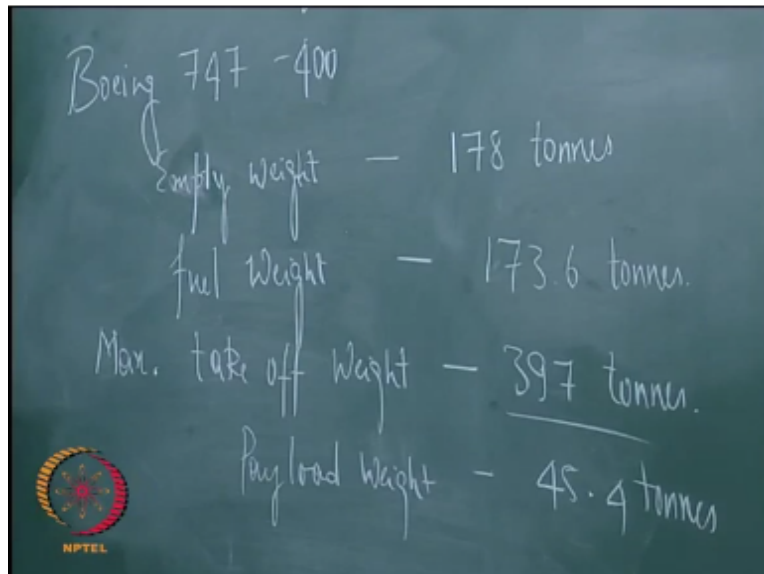 Boeing 747 -400
Empty weight — 178 tonnes
fuel weight — 173.6 tonnes.
Max. take off weight — 397 tonnes.
Payload weight - 45.4 tonnes
NPTEL